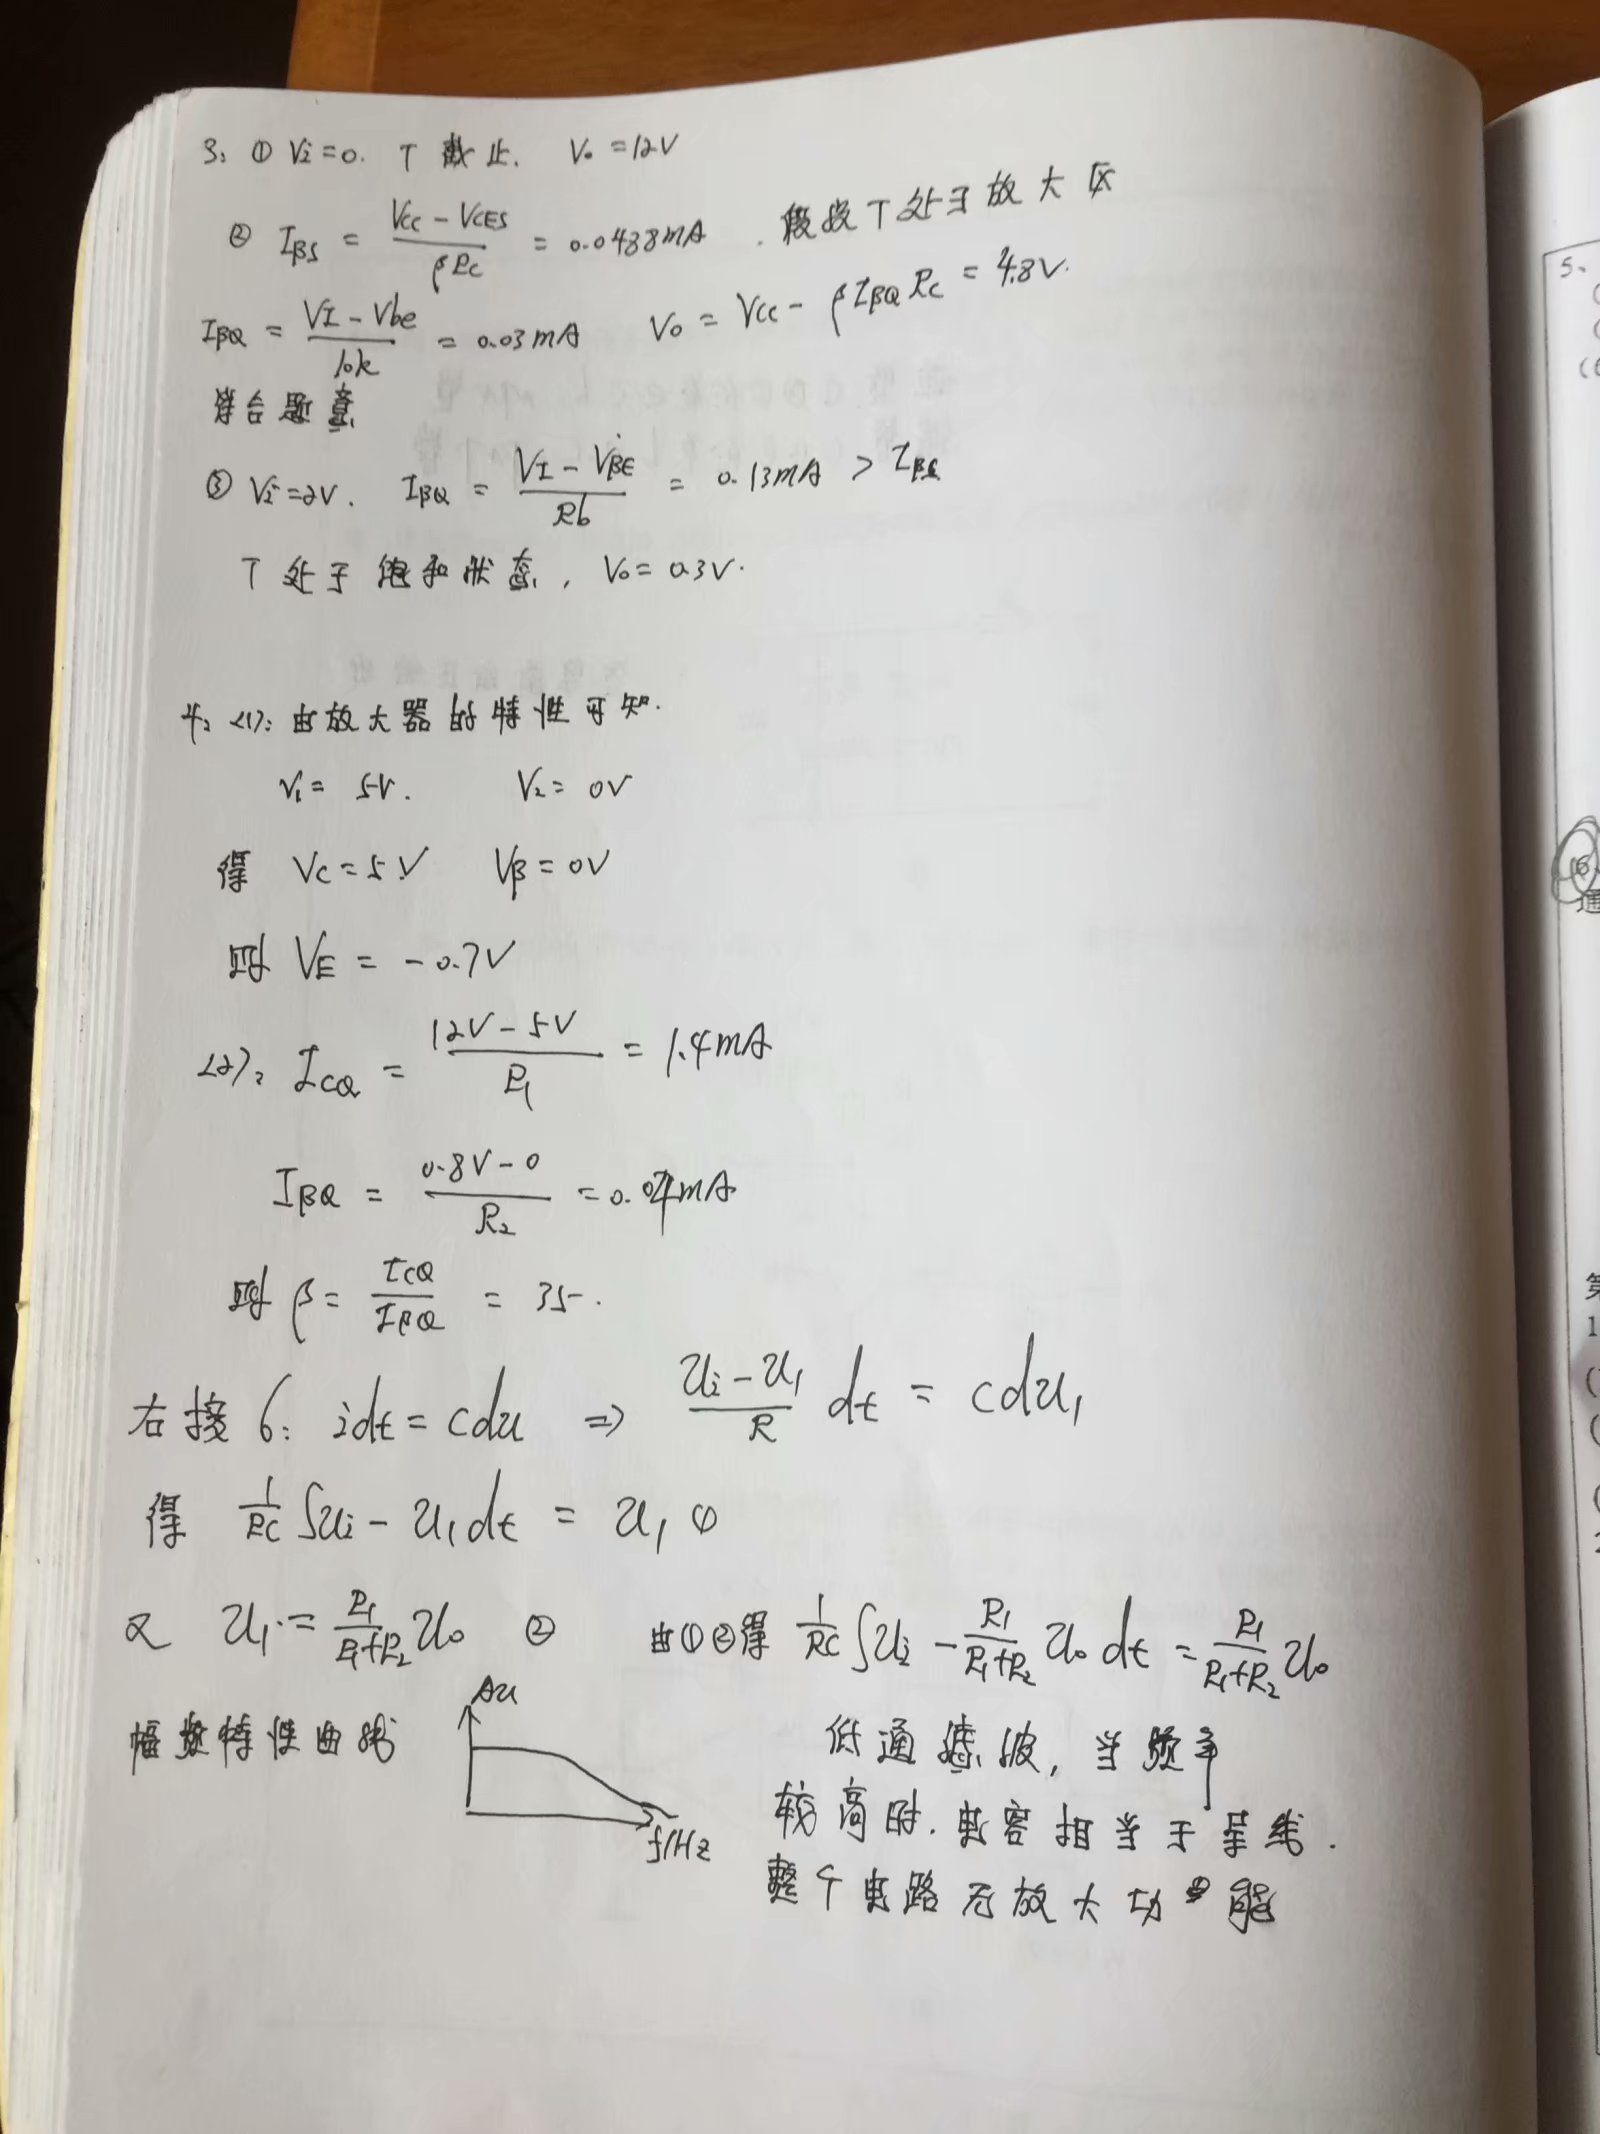 3: ① Vi=0. T 截止. Vo=12V
② IBS = (VCC-VCES)/(βRC) = 0.0488mA . 假设T处于放大区
IBQ = (VI-Vbe)/10k = 0.03mA Vo = VCC-βIBQRC = 4.8V.
符合题意
③ Vi=2V. IBQ = (VI-VBE)/Rb = 0.13mA > IBS
T处于饱和状态, Vo=0.3V.
4: (1): 由放大器的特性可知.
V1= 5V. V2= 0V
得 VC=5V VB=0V
则 VE = -0.7V
(2): ICQ = (12V-5V)/R1 = 1.4mA
IBQ = (0.8V-0)/R2 = 0.04mA
则 β= ICQ/IBQ = 35.
右接6: idt=cdu ⇒ (ui-u1)/R dt = cdu1
得 1/RC ∫ui-u1dt = u1 ①
又 u1=R1/(R1+R2) uo ② 由①②得 1/RC ∫ui - R1/(R1+R2) uo dt = R1/(R1+R2) uo
幅频特性曲线 Au
f/Hz
低通滤波, 当频率
较高时. 电容相当于导线.
整个电路无放大功能
5、
(
(
(6
16.
通
第
1
(
(
(
2